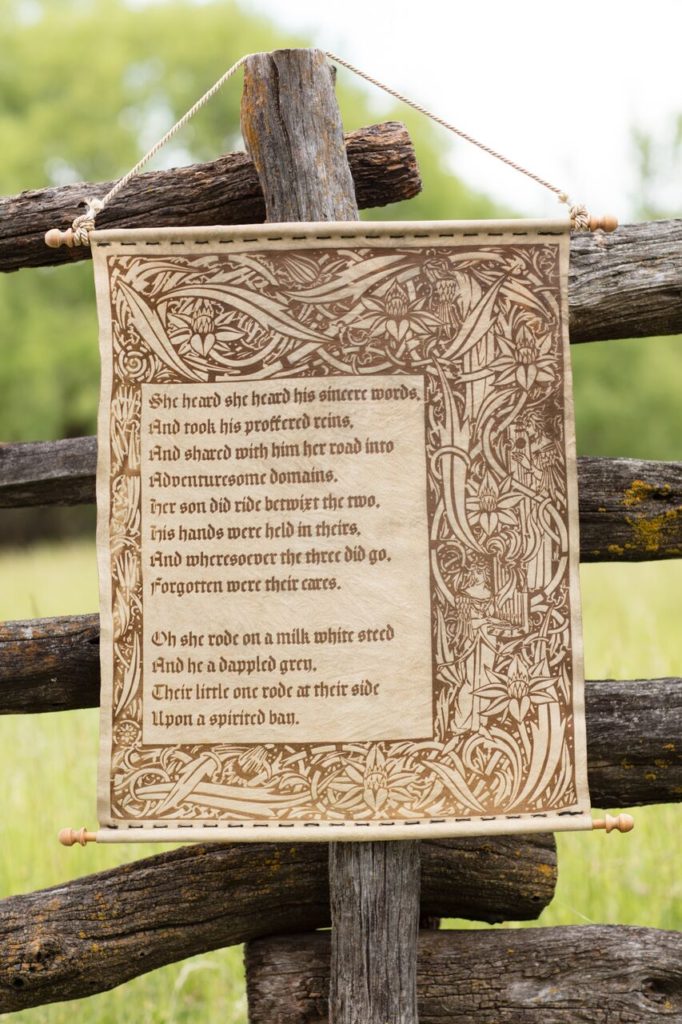 She heard she heard his sincere words,
And took his proffered reins,
And shared with him her road into
Adventuresome domains.
Her son did ride betwixt the two,
His hands were held in theirs,
And wheresoever the three did go,
Forgotten were their cares.
Oh she rode on a milk white steed
And he a dappled grey,
Their little one rode at their side
Upon a spirited bay.